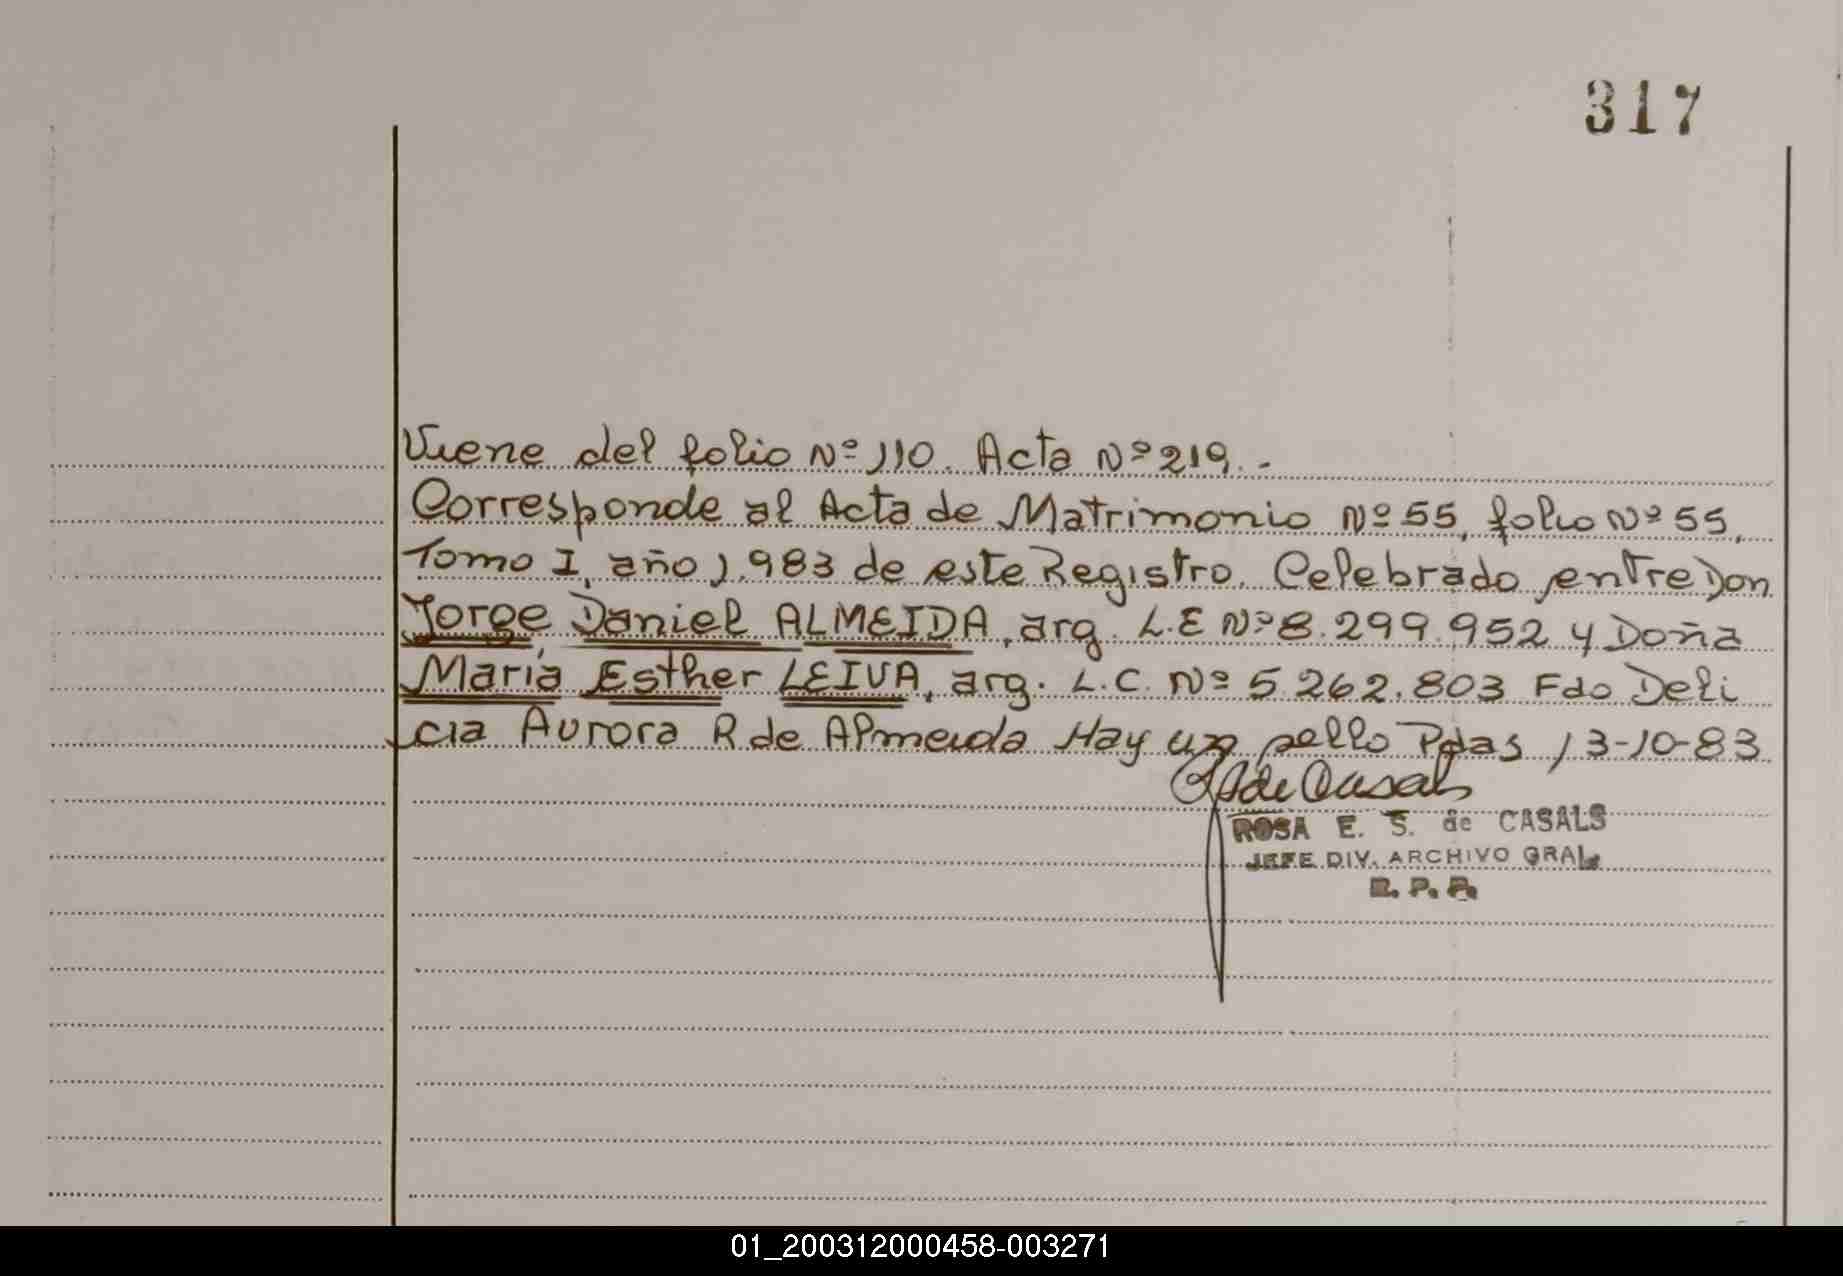 317
Viene del folio Nº 110. Acta Nº 219.-
Corresponde al Acta de Matrimonio Nº 55, folio Nº 55,
Tomo I, año 1.983 de este Registro. Celebrado entre Don
Jorge Daniel ALMEIDA, arg. L.E Nº 8.299.952 y Doña
Maria Esther LEIVA, arg. L.C. Nº 5.262.803 Fdo Deli
cia Aurora R de Almeida Hay un sello Pdas 13-10-83
de Casals
ROSA E. S. de CASALS
JEFE DIV. ARCHIVO GRAL.
R. P. P.
01_200312000458-003271